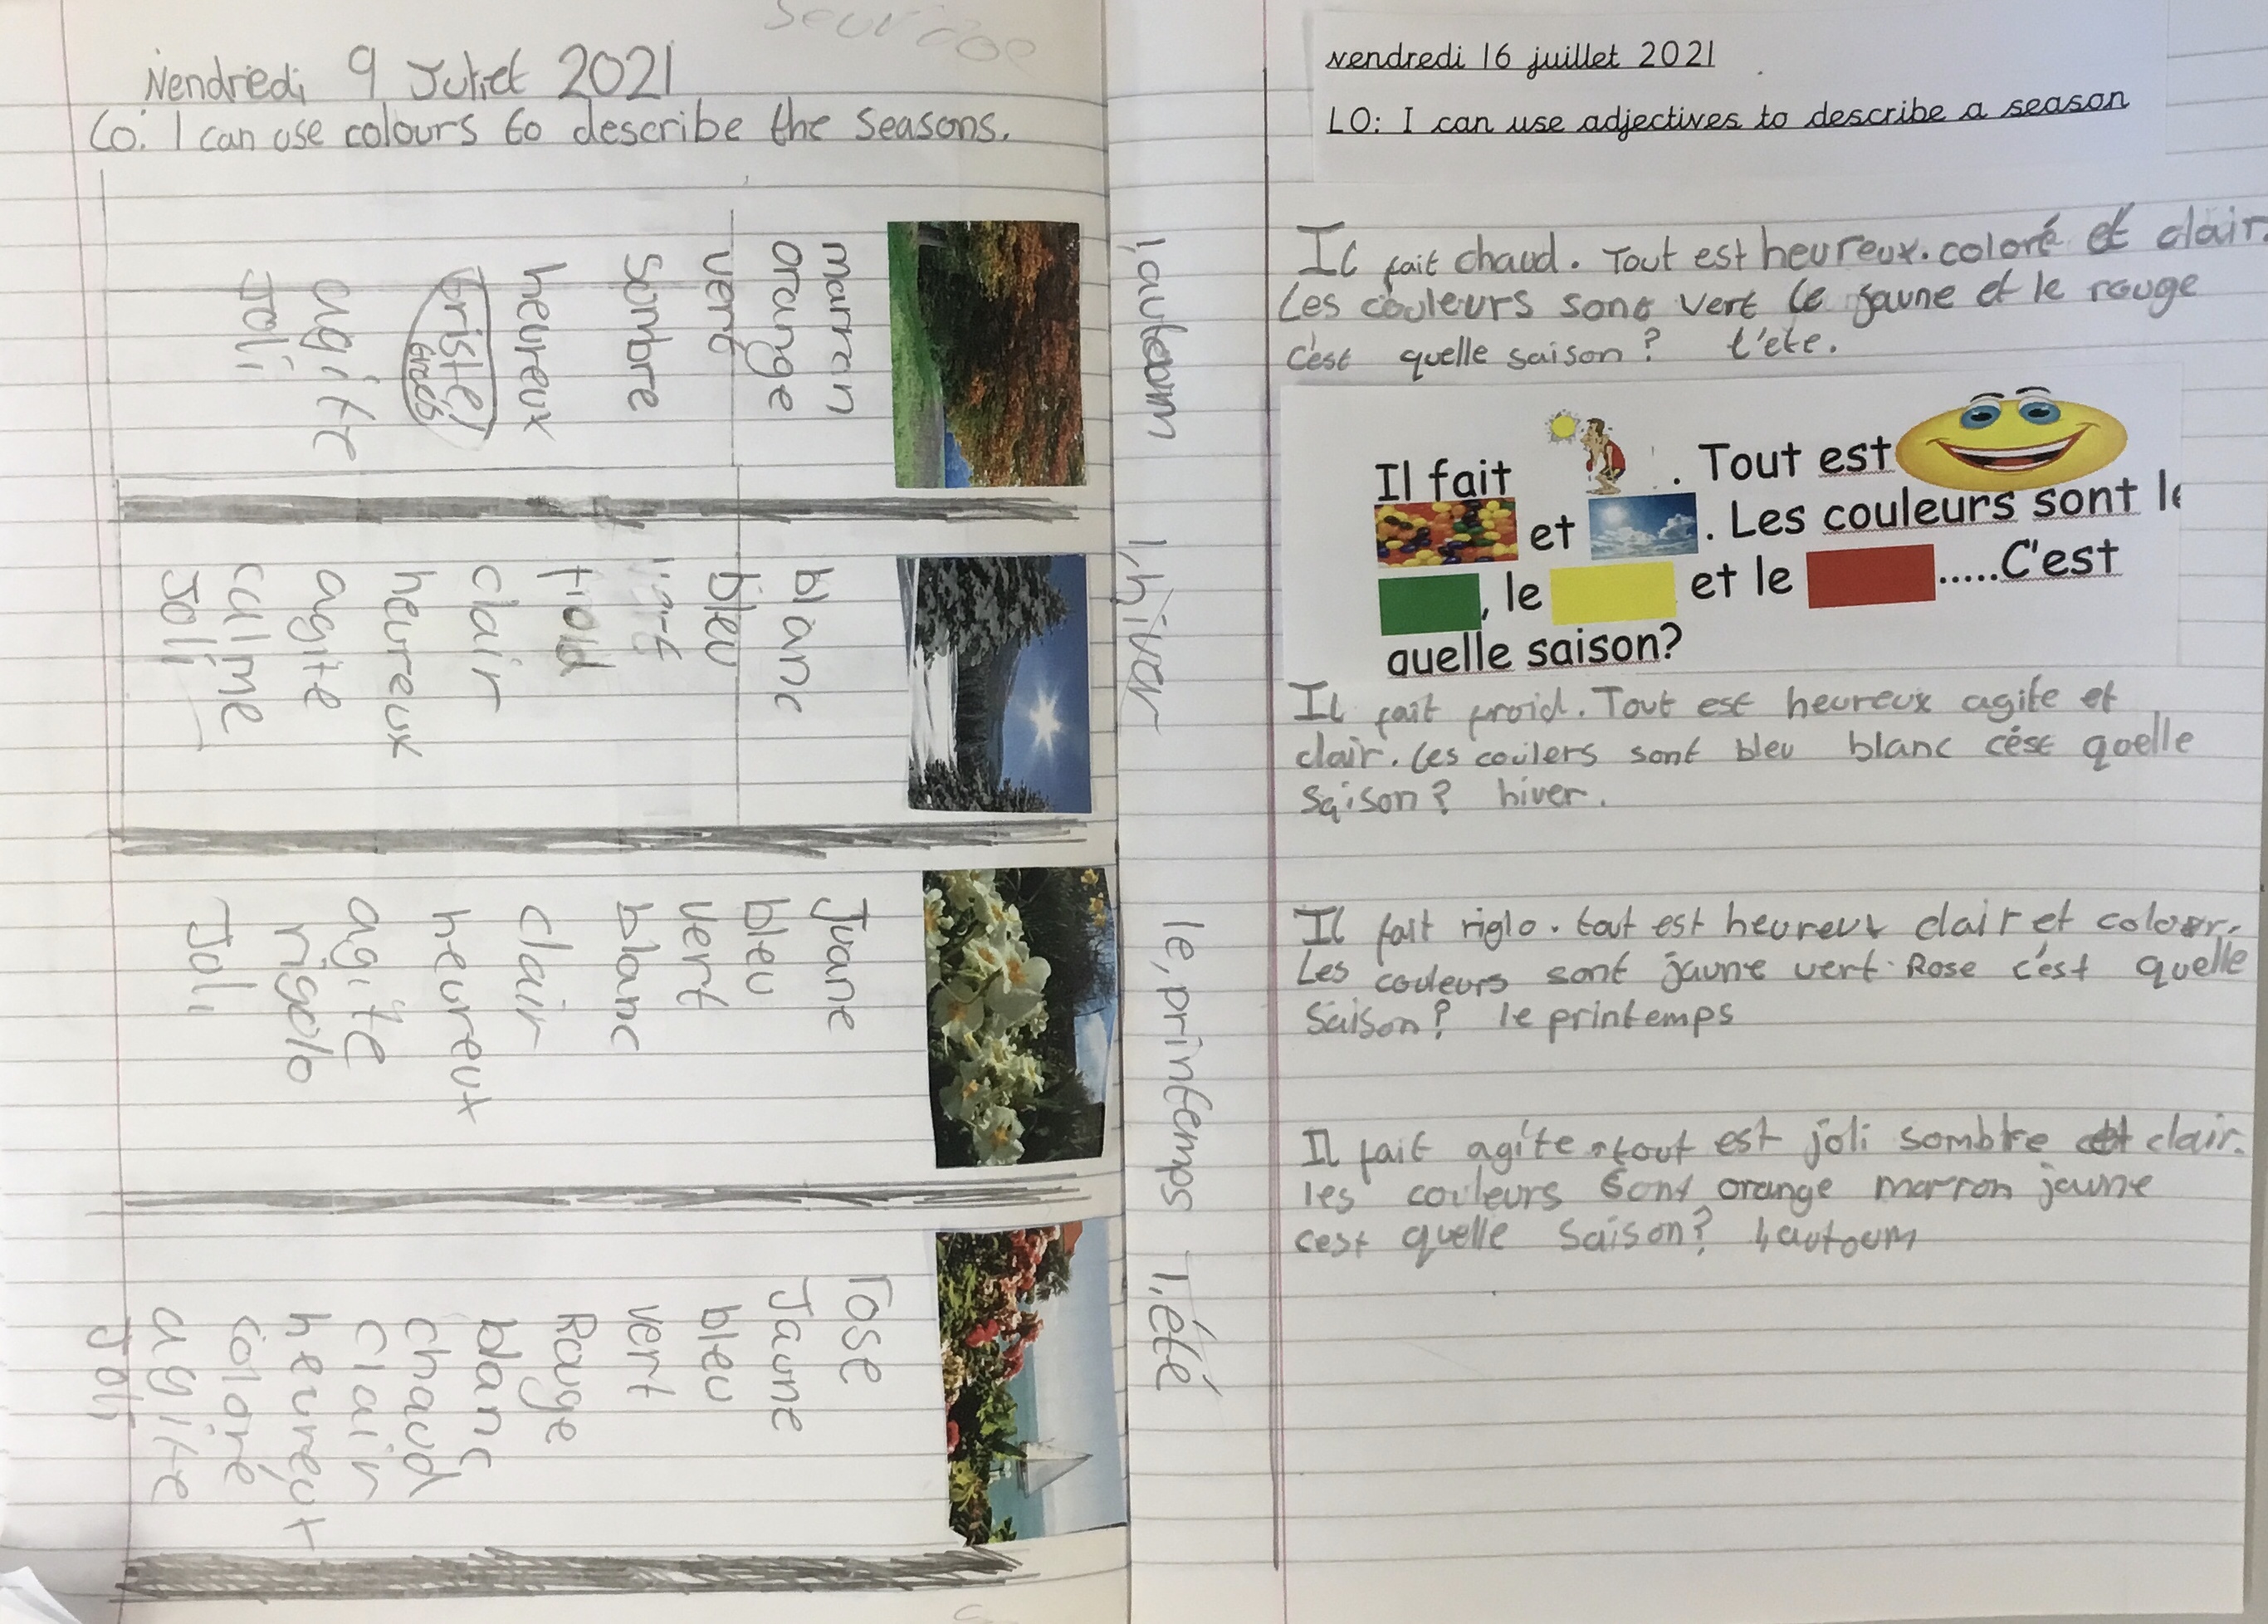 Vendredi 9 Juliet 2021
Lo: I can use colours to describe the seasons.
l,autoum
marron
orange
vert
Sombre
heureux
triste
agite
Joli
l,hiver
blanc
bleu
vert
froid
clair
heureux
agite
calme
Joli
le,printemps
Juane
bleu
vert
blanc
clair
heureux
agite
rigolo
Joli
l,été
rose
Jaune
bleu
vert
Rouge
blanc
chaud
Clair
heureux
coloré
agite
Joli
vendredi 16 juillet 2021
LO: I can use adjectives to describe a season
Il fait chaud. Tout est heureux. coloré et clair.
Les couleurs sont vert le jaune et le rouge
c'est quelle saison? l'ete.
Il fait . Tout est
et . Les couleurs sont le
, le et le .....C'est
quelle saison?
Il fait froid. Tout est heureux agite et
clair. Les coulers sont bleu blanc cést quelle
saison? hiver.
Il fait riglo. tout est heureux clair et coloer.
Les couleurs sont jaune vert. Rose c'est quelle
Saison? le printemps
Il fait agite. tout est joli sombre et clair.
les couleurs sont orange marron jaune
cest quelle saison? lautoum